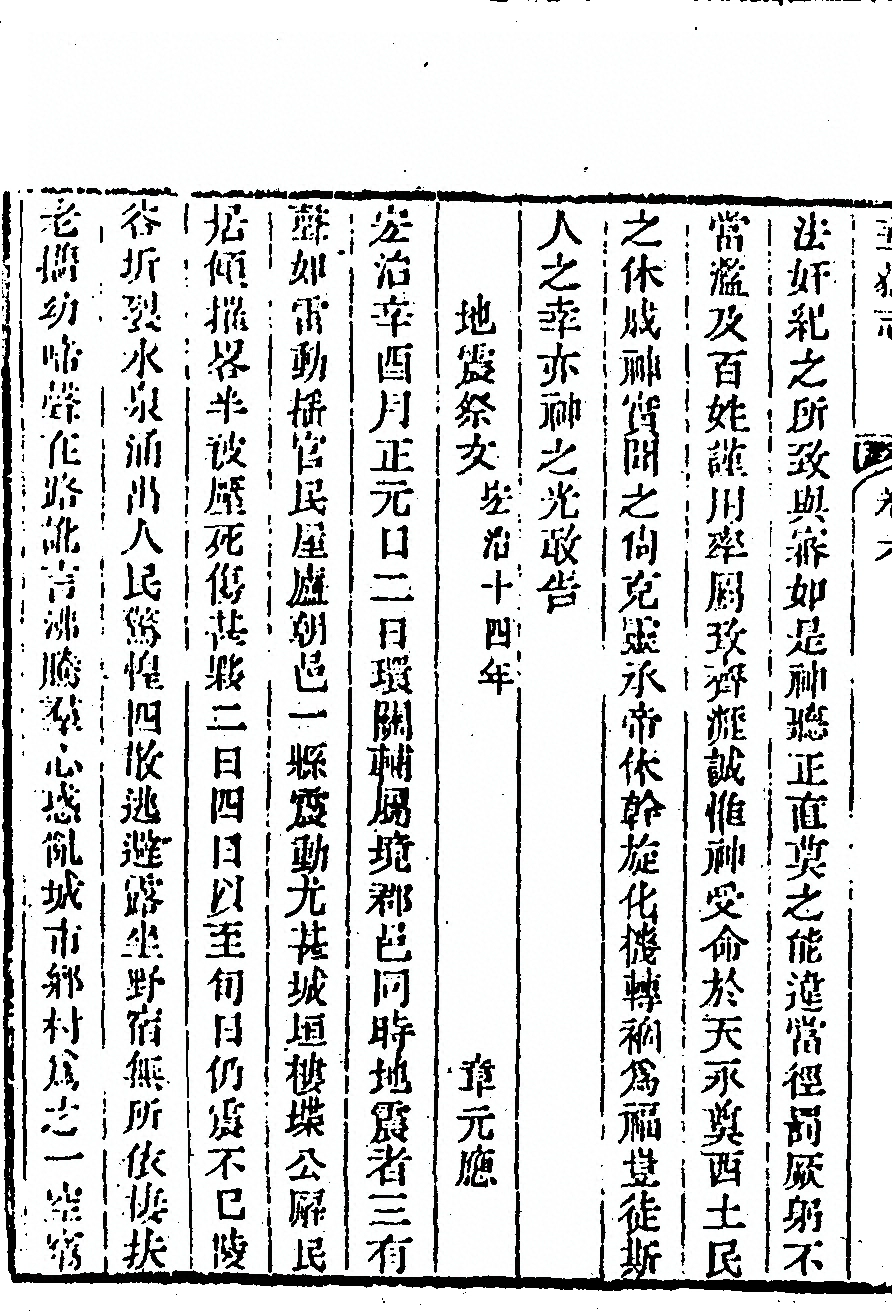 法奸軌之所致與審如是神聽正直莫之能違當徑罰厥躬不
當濫及百姓謹用率屬致齊瀝誠惟神受命於天永奠西土民
之休戚神實聞之尚克靈承帝休幹旋化機轉禍爲福豈徒斯
人之幸亦神之光敢告
地震祭文 宏治十四年 章元應
宏治辛酉月正元日二日環關輔屬境郡邑同時地震者三有
聲如雷動搖官民屋廬朝邑一縣震動尤甚城垣樓堞公廨民
居傾摧畧半被壓死傷甚夥二日四日以至旬日仍震不已陵
谷坼裂水泉涌出人民驚惶四散逃避露坐野宿無所依棲扶
老攜幼啼聲在路訛言沸騰羣心惑亂城市鄉村爲之一空竊